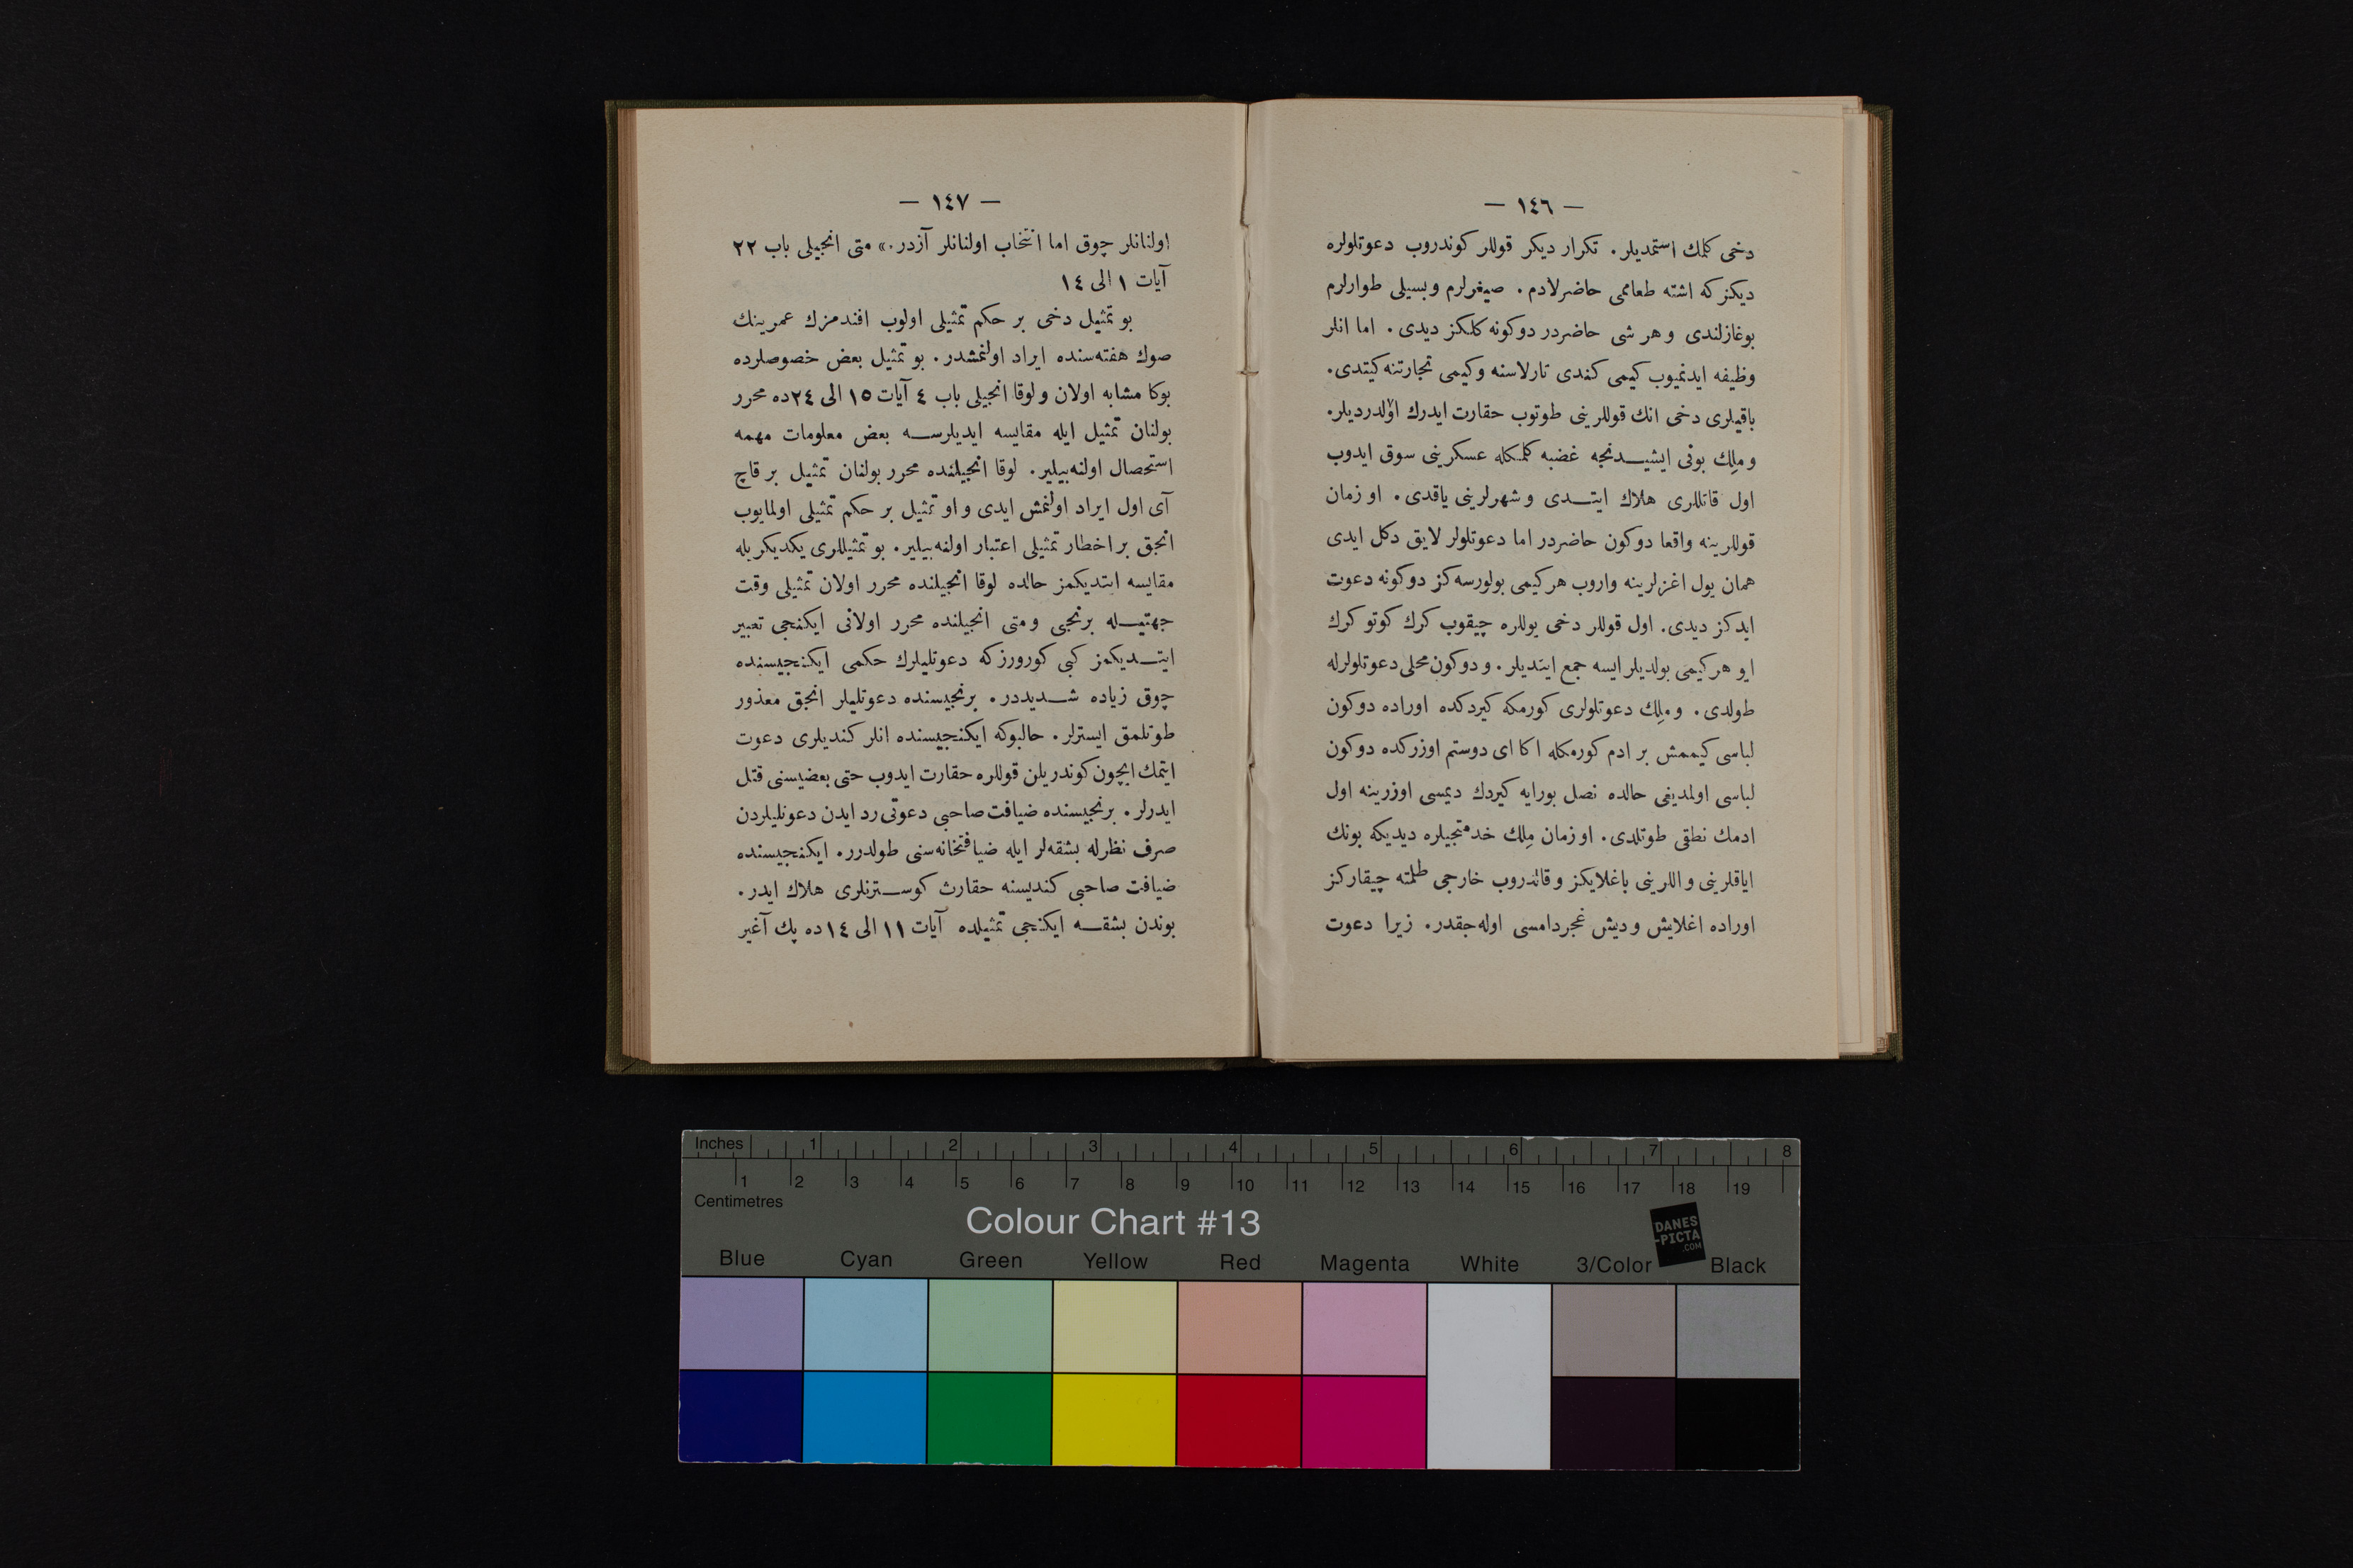 — ١٤٦ —
دخی كلمك استمدیلر. تكرار دیكر قوللر كوندروب دعوتلولره
دیكزكه اشته طعامی حاضرلادم. صیغرلرم وبسیلی طوارلرم
بوغازلندی وهر شی حاضردر دوكونه كلكز دیدی. اما انلر
وظیفه ایدنمیوب كیمی كندی تارلاسنه وكیمی تجارتنه كیتدی.
باقیلری دخی انك قوللرینی طوتوب حقارت ایدرك اولدردیلر.
وملِك بونی ایشیـدنجه غضبه كلمكله عسكرینی سوق ایدوب
اول قاتللری هلاك ایتـدی وشهرلرینی یاقدی. او زمان
قوللرینه واقعا دوكون حاضردر اما دعوتلولر لایق دكل ایدی
همان یول اغزلرینه واروب هركیمی بولورسه‌كز دوكونه دعوت
ایدكز دیدی. اول قوللر دخی یوللره چیقوب كرك كوتو كرك
ایو هركیمی بولدیلر ایسه جمع ایتدیلر. ودوكون محلی دعوتلولرله
طولدی. وملِك دعوتلولری كورمكه كیردكده اوراده دوكون
لباسی كیممش بر ادم كورمكله اكا ای دوستم اوزركده دوكون
لباسی اولمدیغی حالده نصل بورایه كیردك دیمسی اوزرینه اول
ادمك نطقی طوتلدی. او زمان مِلك خدمتجیلره دیدیكه بونك
ایاقلرینی واللرینی باغلایكز وقالدروب خارجی ظلمته چیقاركز
اوراده اغلایش ودیش غجردامسی اوله‌جقدر. زیرا دعوت
— ١٤٧ —
اولنانلر چوق اما انتخاب اولنانلر آزدر.» متی انجیلی باب ٢٢
آیات ١ الی ١٤
بو تمثیل دخی بر حكم تمثیلی اولوب افندمزك عمرینك
صوك هفته‌سنده ایراد اولنمشدر. بو تمثیل بعض خصوصلرده
بوكا مشابه اولان ولوقا انجیلی باب ٤ آیات ١٥ الی ٢٤ده محرر
بولنان تمثیل ایله مقایسه ایدیلرسـه بعض معلومات مهمه
استحصال اولنه‌بیلیر. لوقا انجیلنده محرر بولنان تمثیل برقاچ
آی اول ایراد اولنمش ایدی واو تمثیل بر حكم تمثیلی اولمایوب
انجق براخطار تمثیلی اعتبار اولنه‌بیلیر. بو تمثیللری یكدیكریله
مقایسه ایتدیكمز حالده لوقا انجیلنده محرر اولان تمثیلی وقت
جهتیـله برنجی ومتی انجیلنده محرر اولانی ایكنجی تعبیر
ایتـدیكمز كبی كورورزكه دعوتلیلرك حكمی ایكنجیسنده
چوق زیاده شـدیددر. برنجیسنده دعوتلیلر انجق معذور
طوتلمق ایسترلر. حالبوكه ایكنجیسنده انلر كندیلری دعوت
ایتمك ایچون كوندریلن قوللره حقارت ایدوب حتی بعضیسنی قتل
ایدرلر. برنجیسنده ضیافت صاحبی دعوتی رد ایدن دعوتلیلردن
صرف نظرله بشقه‌لر ایله ضیافتخانه‌سنی طولدرر. ایكنجیسنده
ضیافت صاحبی كندیسنه حقارت كوسـترنلری هلاك ایدر.
بوندن بشقـه ایكنجی تمثیلده آیات ١١ الی ١٤ده پك آغیر
Inches 1 2 3 4 5 6 7 8
1 2 3 4 5 6 7 8 9 10 11 12 13 14 15 16 17 18 19
Centimetres
Colour Chart #13
DANES
-PICTA
.COM
Blue Cyan Green Yellow Red Magenta White 3/Color Black